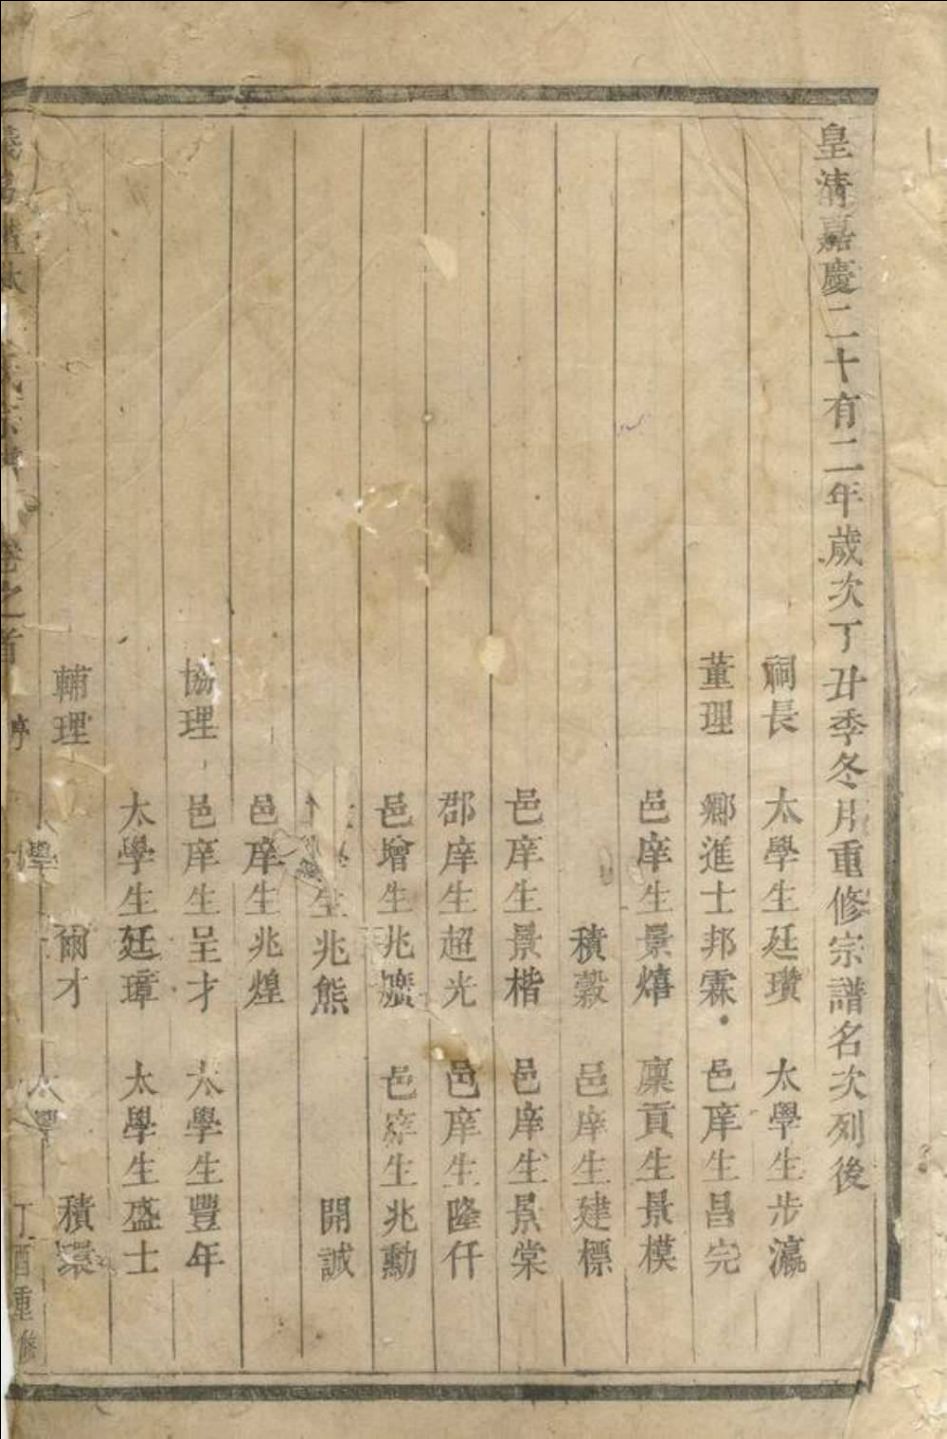 皇清嘉慶二十有二年歲次丁丑季冬月重修宗譜名次列後
祠長 太學生廷瓚 太學生步瀛
董理 鄉進士邦霖 邑庠生昌完
邑庠生景熺 廩貢生景模
積穀 邑庠生建標
邑庠生景楷 邑庠生景棠
郡庠生超光 邑庠生隆仟
邑增生兆爌 邑庠生兆勳
生兆熊 開誠
邑庠生兆煌
協理 邑庠生呈才 太學生豐年
太學生廷璋 太學生盛士
輔理 爾才 積
卷之首 丁酉重修